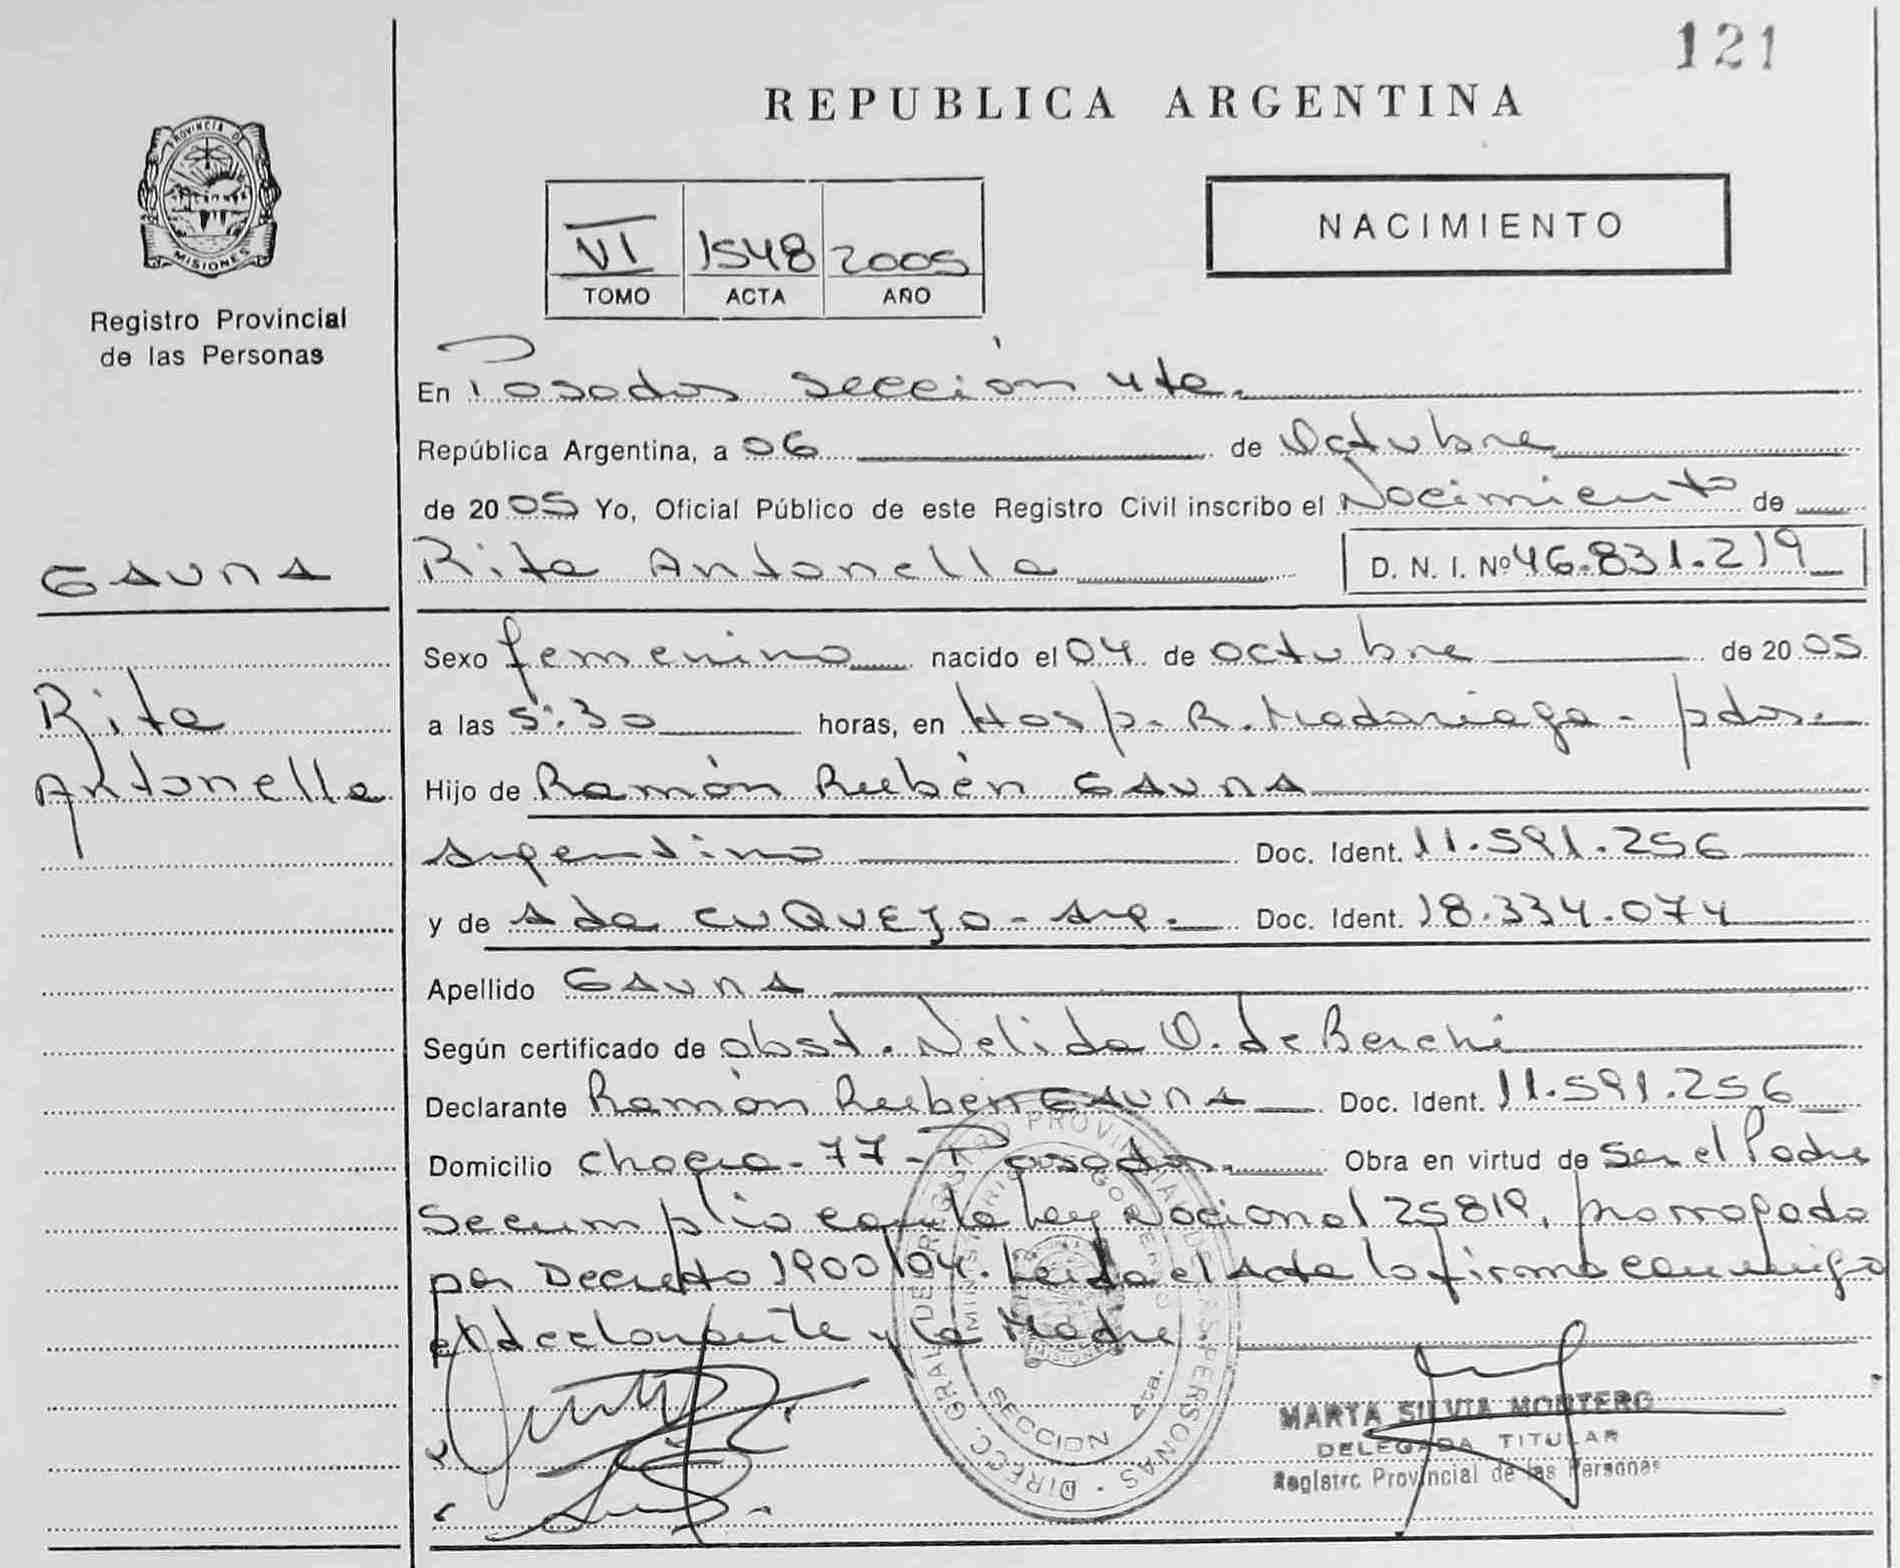 121
REPUBLICA ARGENTINA
PROVINCIA DE
MISIONES
Registro Provincial
de las Personas
VI 1548 2005
TOMO ACTA AÑO
NACIMIENTO
En Posadas Sección 4ta.
República Argentina, a 06 de Octubre
de 2005 Yo, Oficial Público de este Registro Civil inscribo el Nacimiento de
GAUNA
Rita Antonella D. N. I. Nº 46.831.219
Sexo femenino nacido el 04 de octubre de 2005
Rita
a las 5:30 horas, en Hosp. R. Madariaga - pdas.
Antonella
Hijo de Ramón Rubén GAUNA
argentino Doc. Ident. 11.591.256
y de Ada CUQUEJO - arg. Doc. Ident. 18.334.074
Apellido GAUNA
Según certificado de obst. Nelida O. de
Declarante Ramón Rubén GAUNA Doc. Ident. 11.591.256
Domicilio 77 - Posadas. Obra en virtud de Ser el Padre
Se cumplio con la Ley Nacional 25819, prorrogada
por Decreto 1900/04. Leida el Acta la firma conmigo
el declarante y la Madre
DIRECC. GRAL. DE REGISTRO PROVINCIAL DE LAS PERSONAS
MINISTERIO GOBIERNO
MISIONES
SECCION 4ta.
MARTA SILVIA MONTERO
DELEGADA TITULAR
Registro Provincial de las Personas